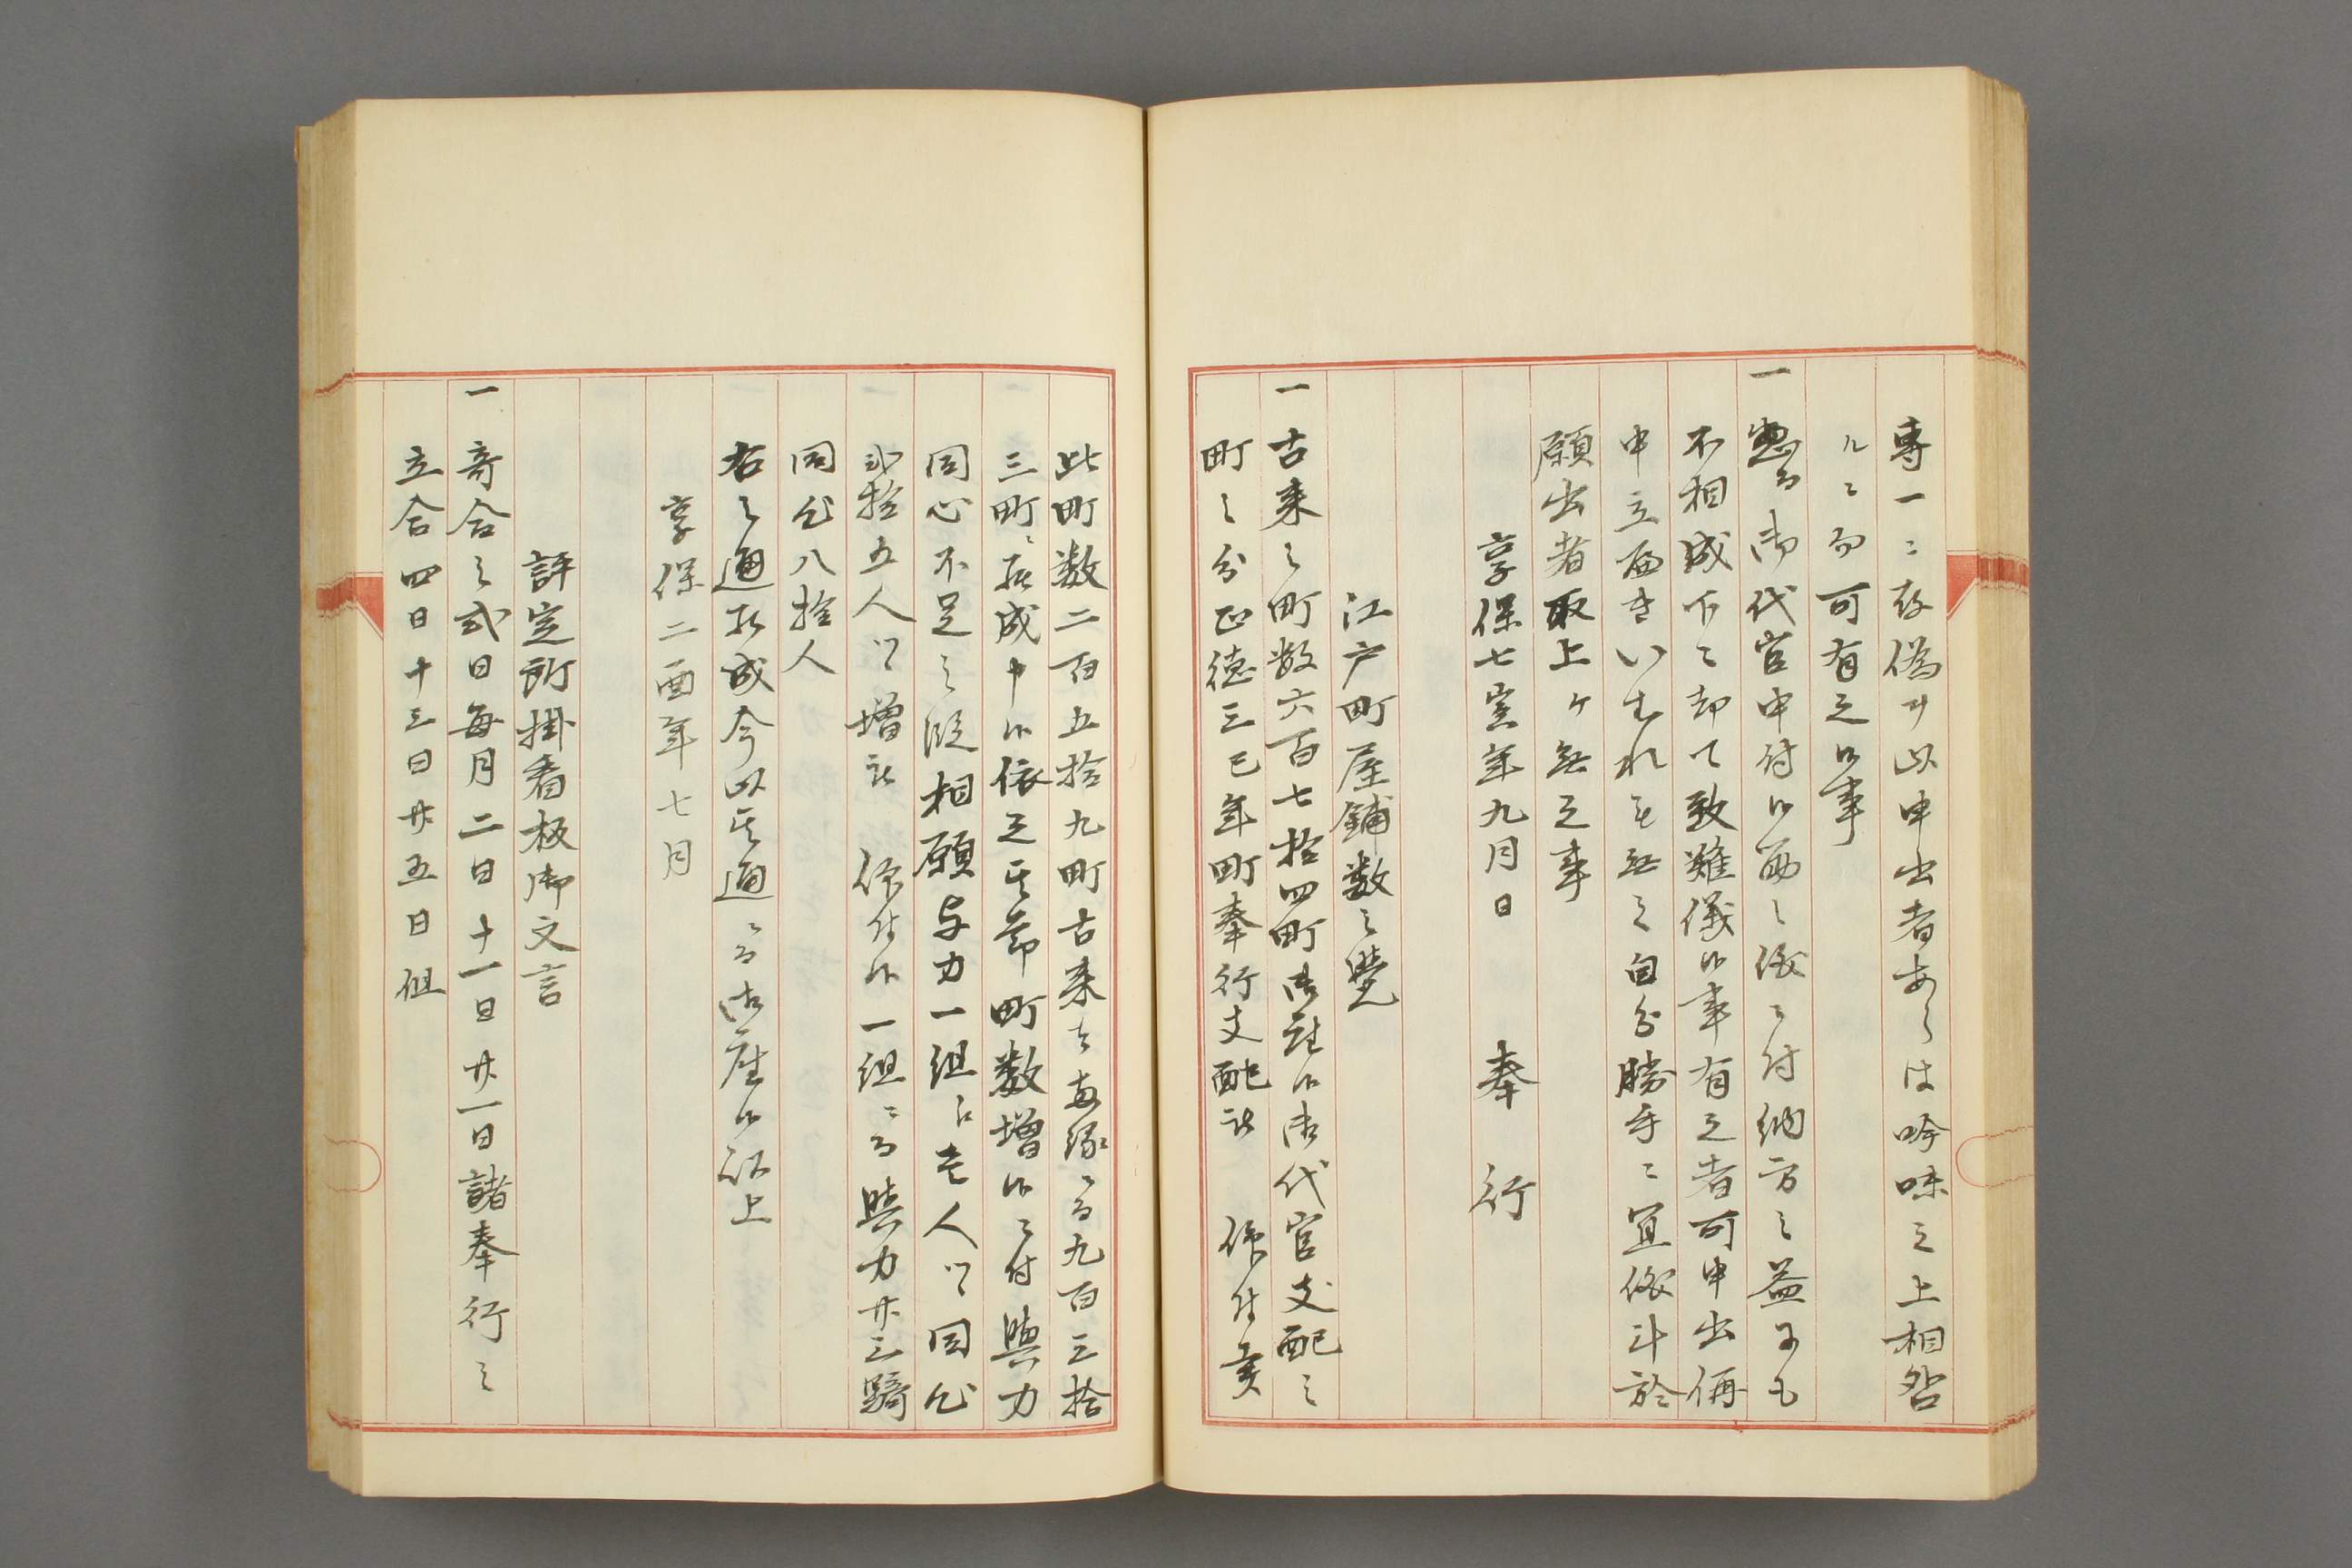 専一ニ存偽ヲ以申出者あらは吟味之上相咎
ルニ而可有之候事
一惣而御代官申付候西之儀ニ付納方之益にも
不相成下ニ却て致難儀候事有之者可申出侢
申立而もいつれも無之自分勝手ニ宜儀斗於
願出者取上ケ無之事
享保七寅年九月日 奉行
江戸町屋鋪数之覚
一古来之町数六百七拾四町御座候御代官支配之
町之分正徳三巳年町奉行支配被 仰付
此町数二百五拾九町古来ゟ両縁ニ而九百三拾
三町ニ罷成申候依之其節町数増候ニ付與力
同心不足之段相願与力一組江壱人ツヽ同心
弐拾五人ツヽ増被 仰付候一組ニ而與力廿三騎
同心八拾人
右之通罷成今以其通ニ而御座候以上
享保二酉年七月
評定所掛看板御文言
一寄合之式日毎月二日十一日廿一日諸奉行之
立合四日十三日廿五日但